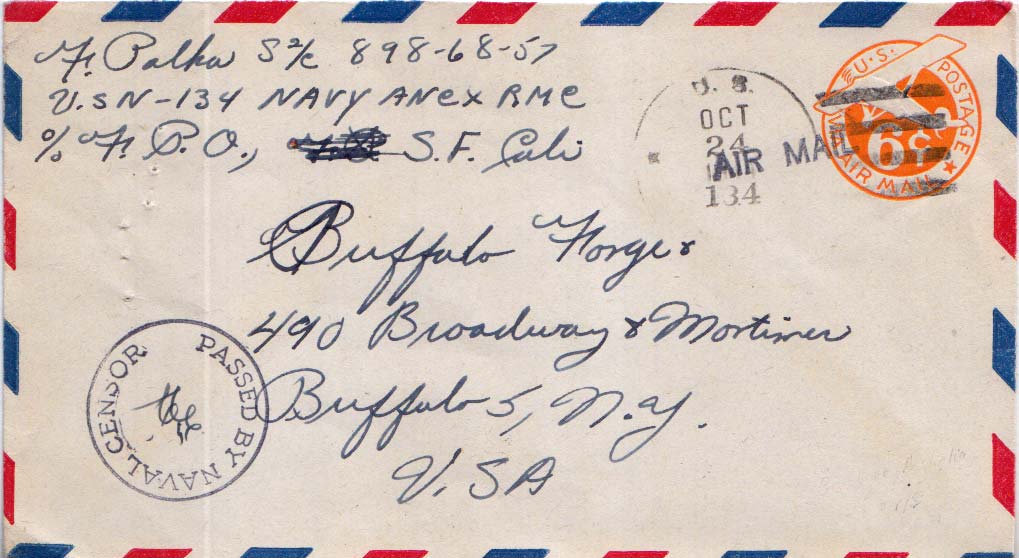 F. Palka S2/c 898-68-57
U.S.N-134 NAVY ANEX RME
% F. P.O., S.F. Cali
U. S.
OCT
24
134
AIR MAIL
U.S. POSTAGE
6c
VIA AIR MAIL
Buffalo Forge &
490 Broadway & Mortimer
Buffalo 5, N.Y.
U.SA
PASSED BY NAVAL CENSOR